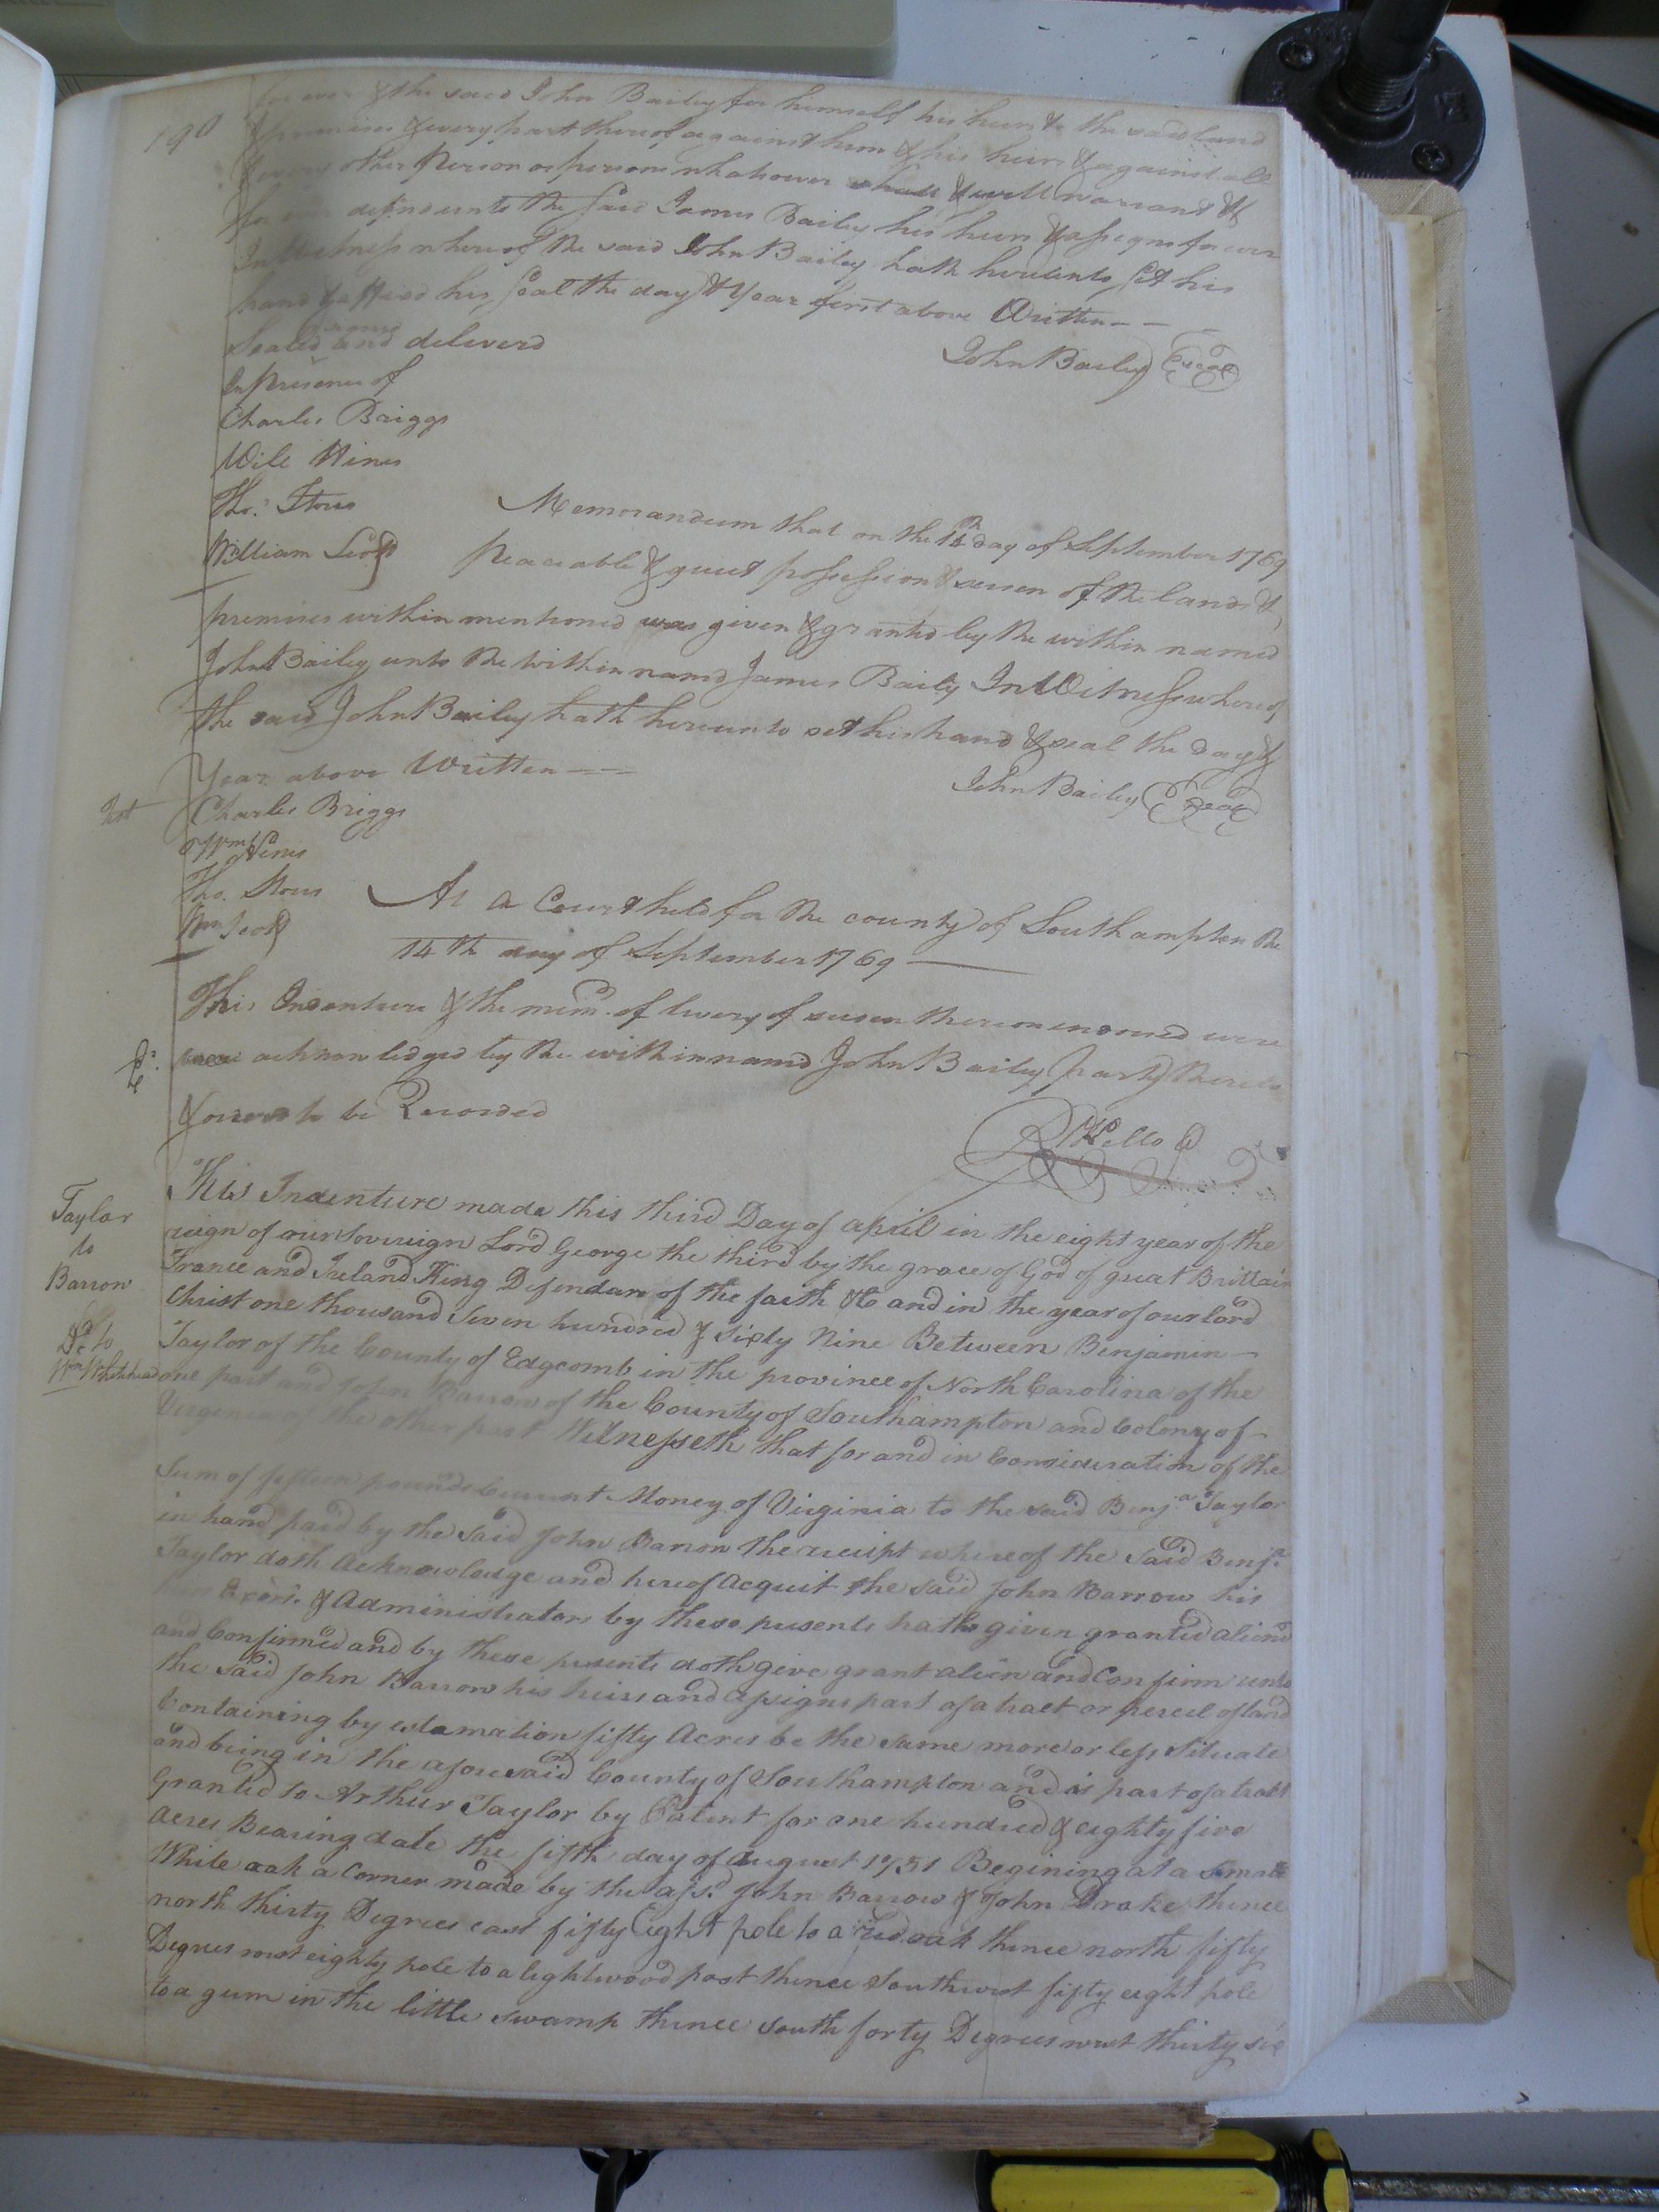 190
for ever & the said John Bailey for himself his heirs & the said land
& premises & every part thereof against him & his heirs & against all
& every other Person or persons whatsoever shall & will warrant &
for ever defend unto the said James Bailey his heirs & assigns for ever
In Witness whereof the said John Bailey hath hereunto set his
hand & affixed his seal the day & Year first above Written
Sealed and deliverd
John Bailey Seal
In Presence of
Charles Briggs
Will Hines
Tho.
William Scott
Memorandum that on the 14th day of September 1769
Peaceable & quiet possession & seisen of the lands &
premises within mentioned was given & granted by the within named
John Bailey unto the within namd James Baily In Witness whereof
the said John Bailey hath hereunto set his hand & seal the day &
Year above Written
John Bailey Seal
Test
Charles Briggs
Wm Hines
Tho.
Wm Scott
At a Court held for the county of Southampton the
14th day of September 1769
This Indenture & the mem.d of livery of seisen thereon endorsed were
acknowledged by the within namd John Bailey party thereto
& orderd to be Recorded
R Kello
Taylor
to
Barrow
This Indenture made this third Day of april in the eight year of the
reign of our Sovereign Lord George the third by the grace of God of great Brittain
France and Ireland King Defendar of the faith &C and in the year of our lord
Christ one thousand Seven hundred & Sixty Nine Between Benjamin
Dd to
Wm Whitehead
Taylor of the County of Edgcomb in the province of North Carolina of the
one part and John Barrow of the County of Southampton and Colony of
Virginia of the other part Witnesseth that for and in Consideration of the
Sum of fifteen pounds Current Money of Virginia to the said Benj.a Taylor
in hand paid by the Said John Barrow the receipt where of the said Benj.a
Taylor doth Acknowledge and hereof Acquit the said John Barrow his
Exors. & Administrators by these presents hath given granted aliend
and Confirmed and by these presents doth give grant alien and Confirm unto
the said John Barrow his heirs and assigns part of a tract or percel of land
Containing by estamation fifty Acres be the same more or less Situate
and being in the aforesaid County of Southampton and is part of a tract
Granted to Arthur Taylor by Patent for one hundred & eighty five
Acres Bearing date the fifth day of August 1751 Begining at a small
White oak a Corner made by the afsd. John Barrow & John Drake thence
north thirty Degrees east fifty Eight pole to a red oak thence north fifty
Degrees west eighty pole to a lightwood post thence Southwest fifty eight pole
to a gum in the little swamp thence south forty Degrees west thirty six